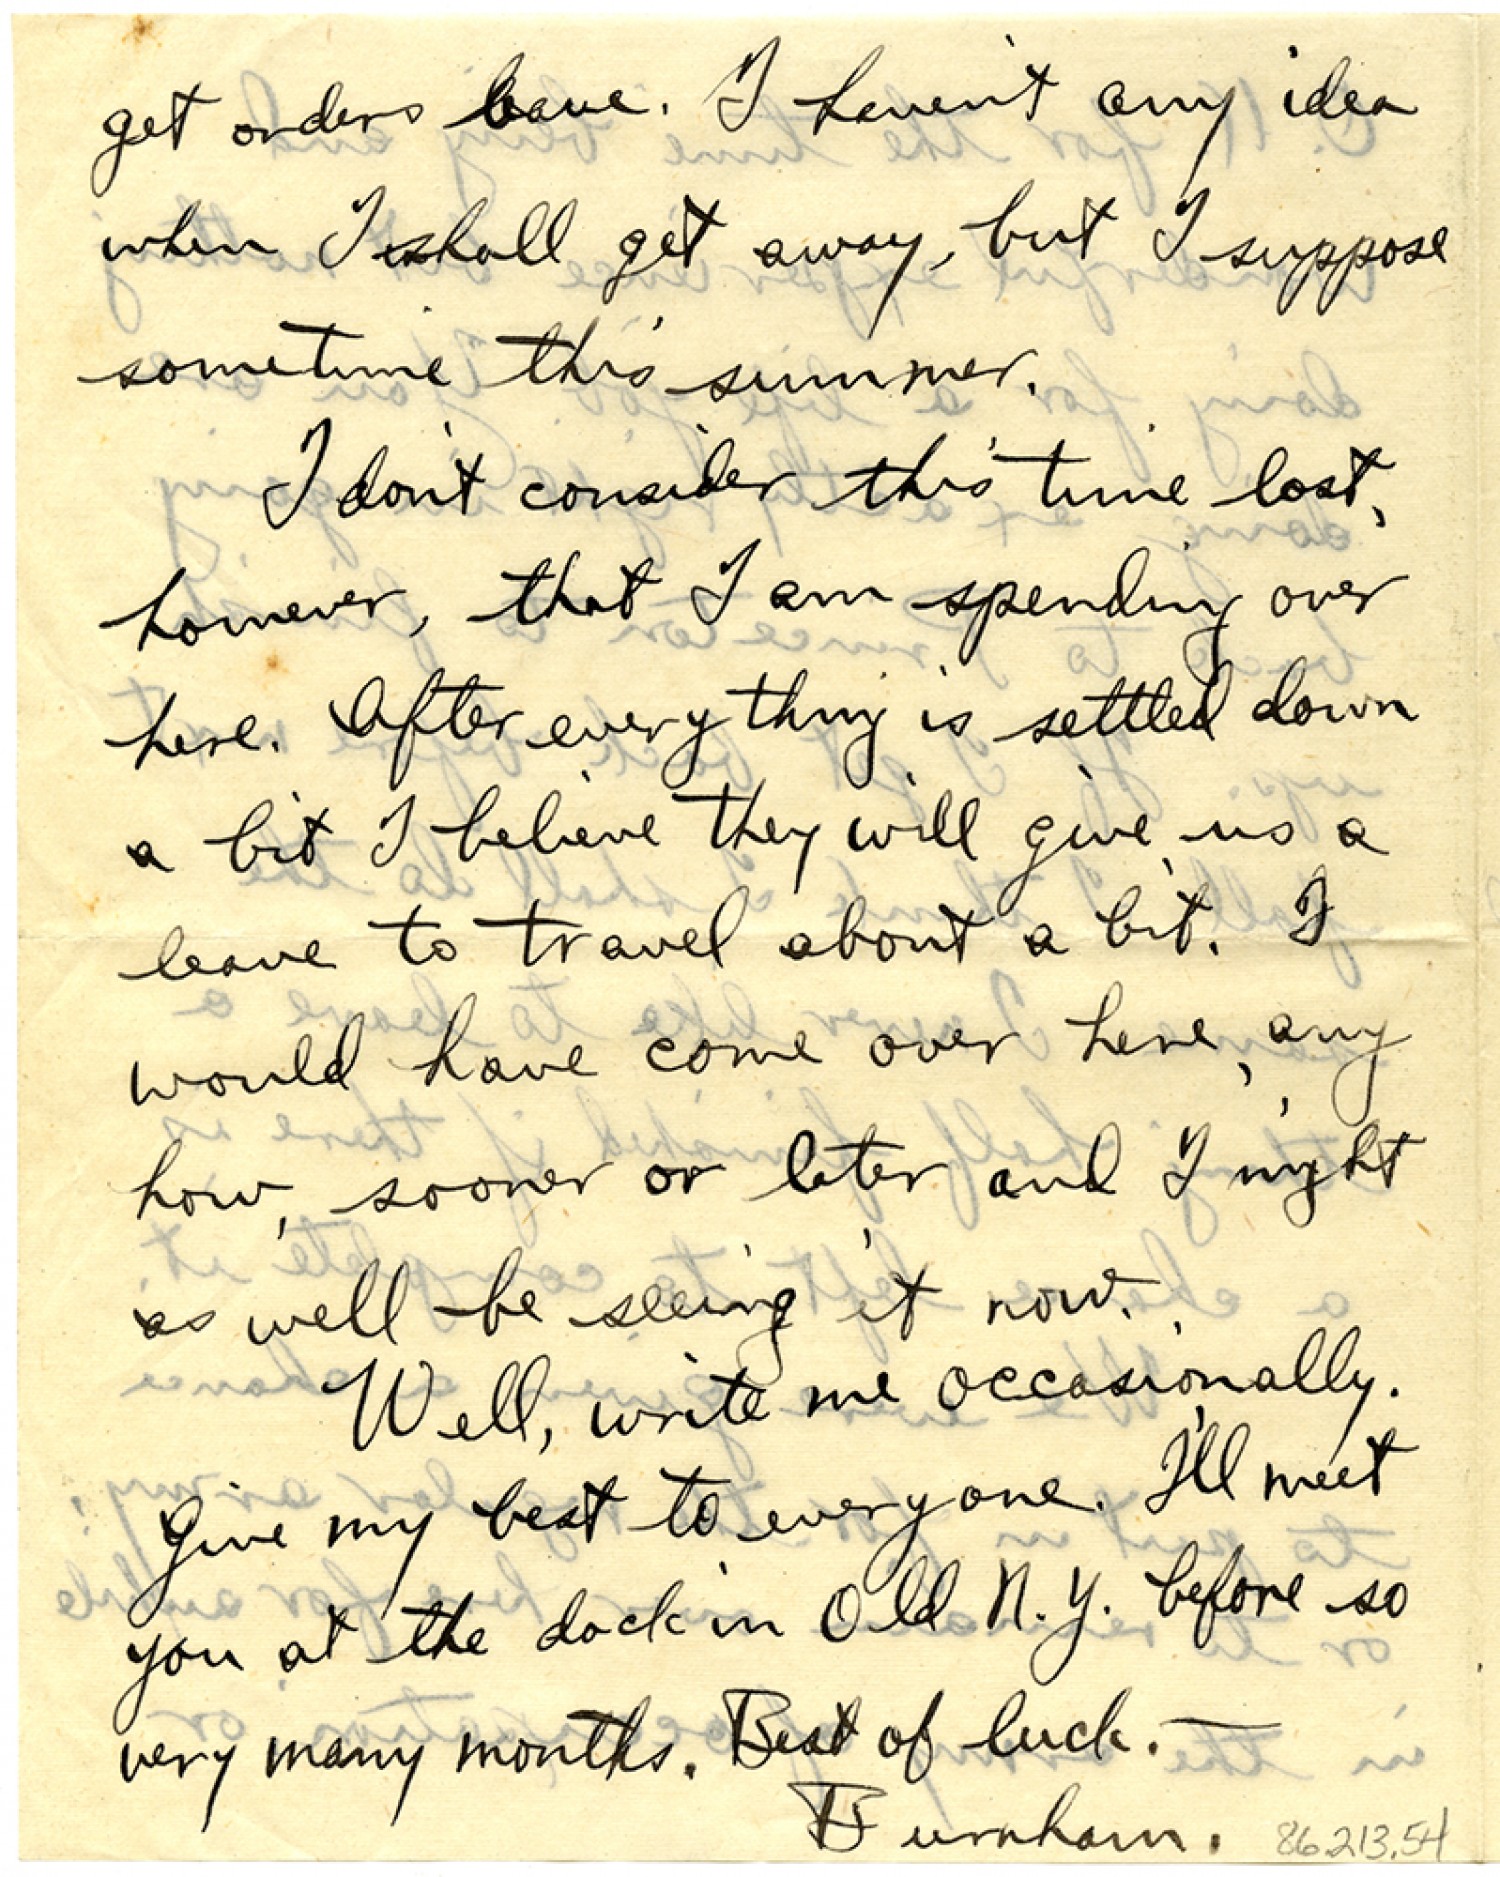 get orders leave. I haven't any idea
when I shall get away, but I suppose
sometime this summer.
I don't consider this time lost,
however, that I am spending over
here. After everything is settled down
a bit I believe they will give us a
leave to travel about a bit. I
would have come over here, any
how, sooner or later and I might
as well be seeing it now.
Well, write me occasionally.
Give my best to everyone. I'll meet
you at the dock in Old N.Y. before so
very many months. Best of luck. —
Burnham.
86.213.54